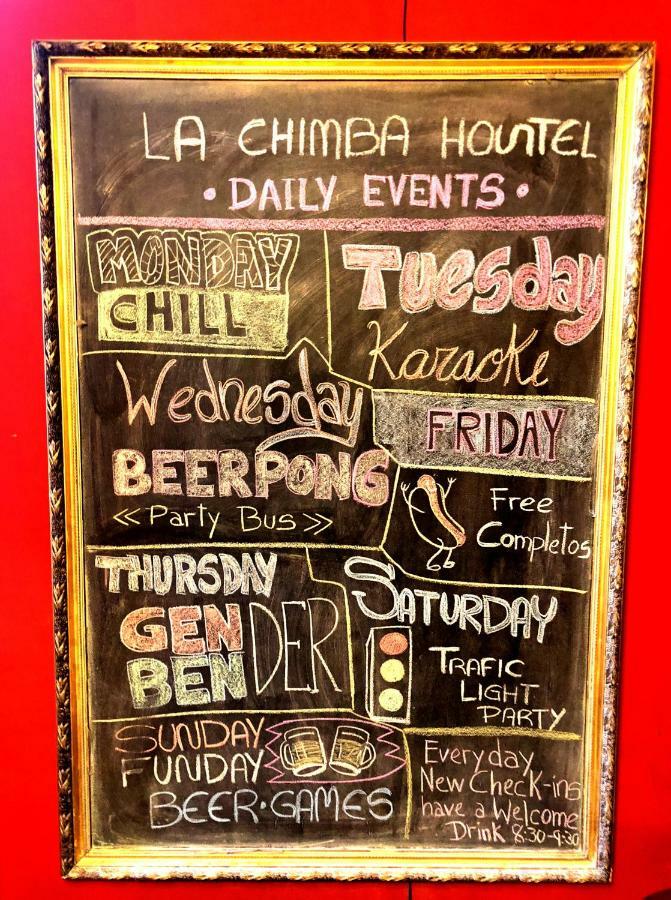 LA CHIMBA HOSTEL
• DAILY EVENTS •
MONDAY
CHILL
Tuesday
Karaoke
Wednesday
BEERPONG
<< Party Bus >>
FRIDAY
Free
Completos
THURSDAY
GENDER
BENDER
SATURDAY
TRAFIC
LIGHT
PARTY
SUNDAY
FUNDAY
BEER•GAMES
Everyday
New Check-ins
have a Welcome
Drink 8:30-9:30